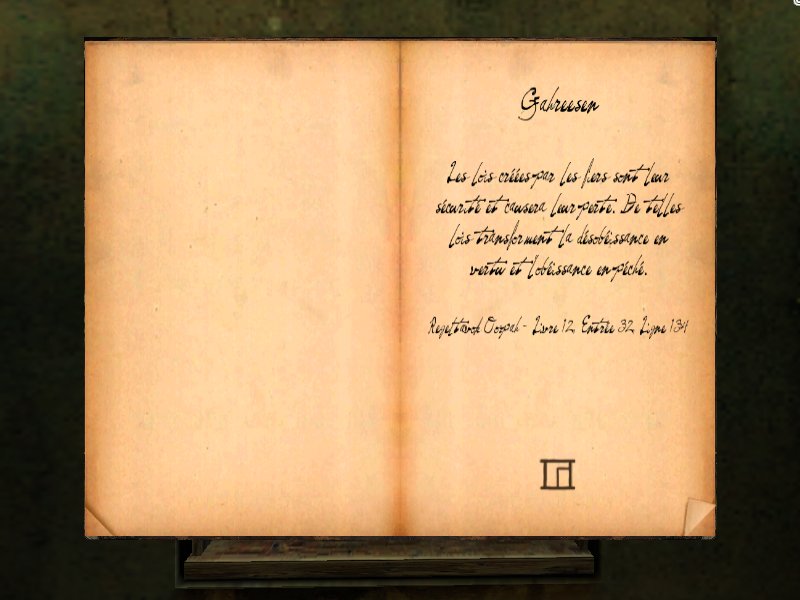 Gahreesen
Les lois créées par les fiers sont leur
sécurité et causera leur perte. De telles
lois transforment la désobéissance en
vertu et l'obéissance en péché.
Regeltavok Oorpah - Livre 12, Entrée 32, Ligne 134